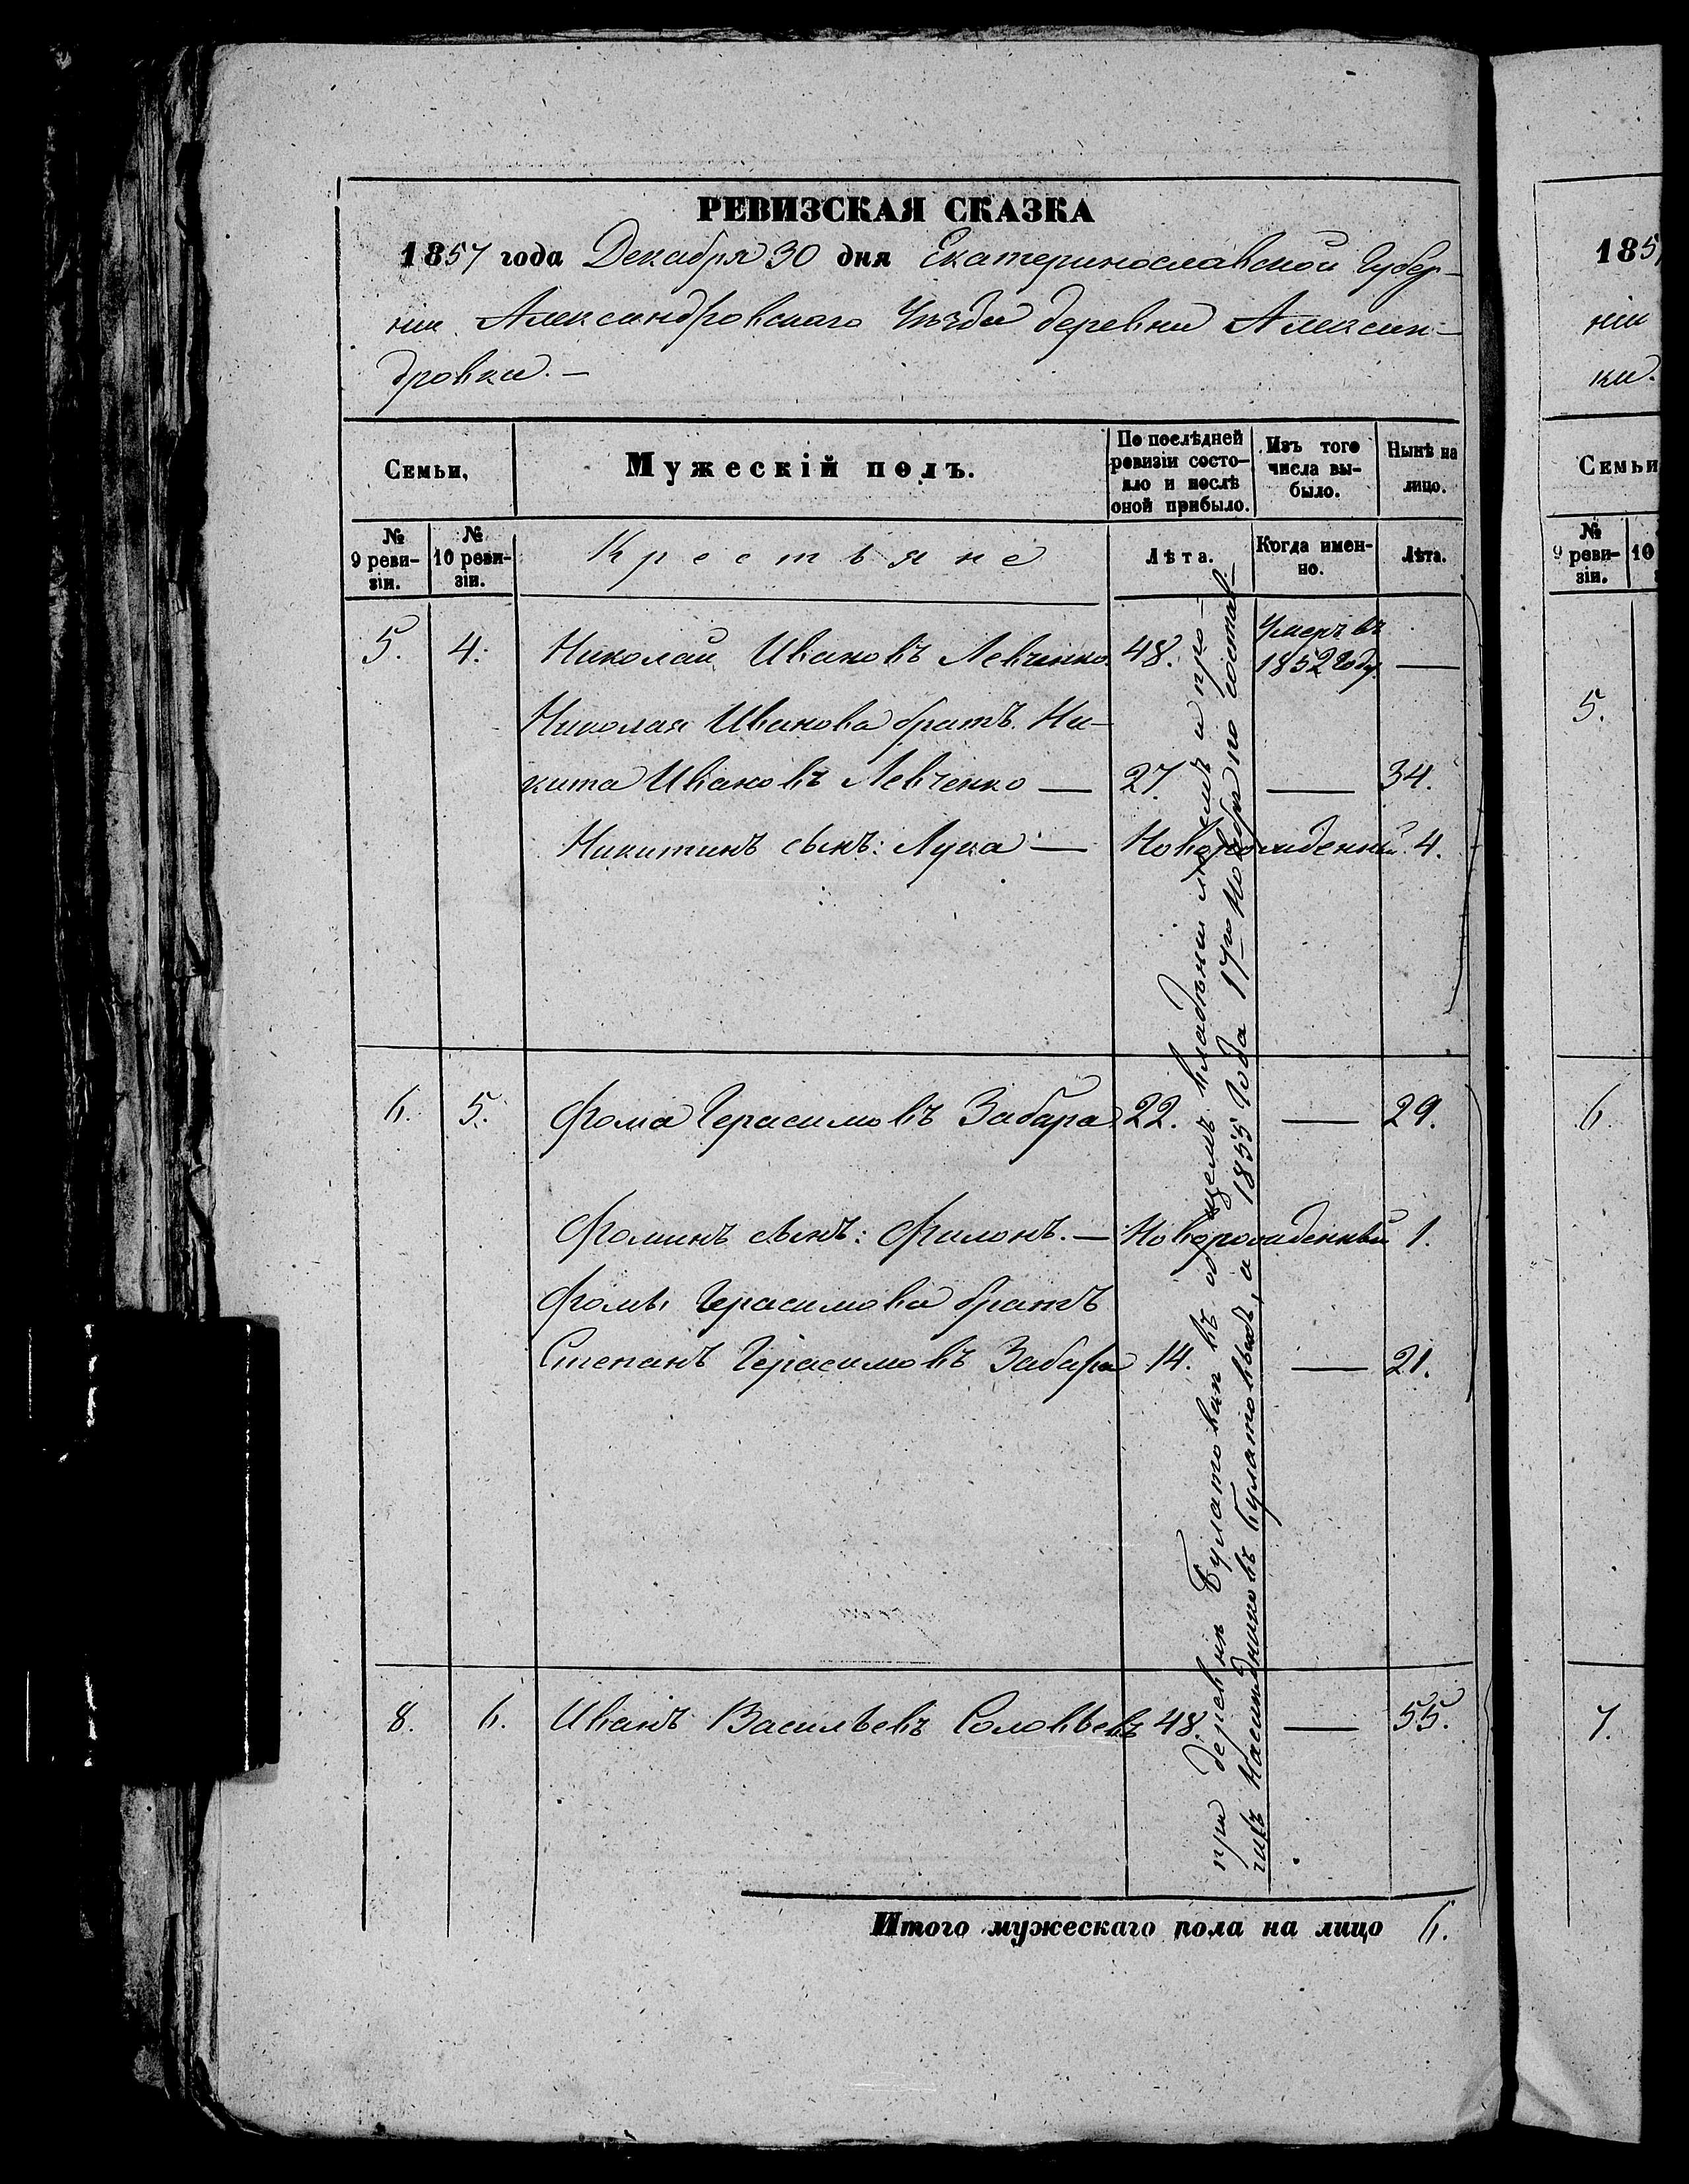 РЕВИЗСКАЯ СКАЗКА
1857 года Декабря 30 дня Екатеринославской Губер-
ніи Александровскаго Уѣзда деревни Алексан-
дровки. —
Семьи,
Мужескій полъ.
По послѣдней
ревизіи состо-
яло и послѣ
оной прибыло.
Изъ того
числа вы-
было.
Нынѣ на
лицо.
№
9 реви-
зіи.
№
10 реви-
зіи.
Крестьяне
Лѣта.
Когда имен-
но.
Лѣта.
5. 4. Николай Ивановъ Левченко 48. Умеръ въ 1852 году. —
Николая Иванова братъ Ни-
кита Ивановъ Левченко — 27. — 34.
Никитинъ сынъ: Лука — Новорожденный 4.
6. 5. Фома Герасимовъ Забара 22. — 29.
Фоминъ сынъ: Филонъ. — Новорожденный 1.
Фомы Герасимова братъ
Степанъ Герасимовъ Забара 14. — 21.
8. 6. Иванъ Васильевъ Соловьевъ 48. — 55.
при деревнѣ Булатовки въ общемъ владѣніи и про-
чихъ Наслѣдниковъ Булатовыхъ, а 1855 года 17го Ноября по состав-
Итого мужескаго пола на лицо 6.
185
ніи
ки.
Семьи
№
9 реви-
зіи.
10
5.
6
7.